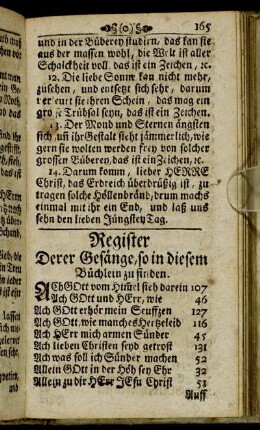 165
und in der Büberey studirn, das kan sie
aus der massen wohl, die Welt ist aller
Schalckheit voll, das ist ein Zeichen, ꝛc.
12. Die liebe Sonne kan nicht mehr,
zusehen, und entsetzt sich sehr, darum
verleurt sie ihren Schein, das mag ein
grosse Trübsal seyn, das ist ein Zeichen.
13. Der Mond und Sternen ängsten
sich, uñ ihr Gestalt sieht jämmerlich, wie
gern sie wolten werden frey von solcher
grossen Büberey, das ist ein Zeichen, ꝛc.
14. Darum komm, lieber HERRE
Christ, das Erdreich überdrüßig ist, zu
tragen solche Höllenbränd, drum machs
einmal mit ihr ein End, und laß uns
sehn den lieben Jüngsten Tag.
Register
Derer Gesänge, so in diesem
Büchlein zu finden.
ACh GOtt vom Him̃el sieh darein 107
Ach GOtt und HErr, wie 46
Ach GOtt erhör mein Seuffzen 127
Ach GOtt, wie manches Hertzeleid 116
Ach HErr mich armen Sünder 45
Ach lieben Christen seyd getrost 121
Ach was soll ich Sünder machen 52
Allein GOtt in der Höh sey Ehr 32
Allein zu dir HErr JEsu Christ 51
Auff